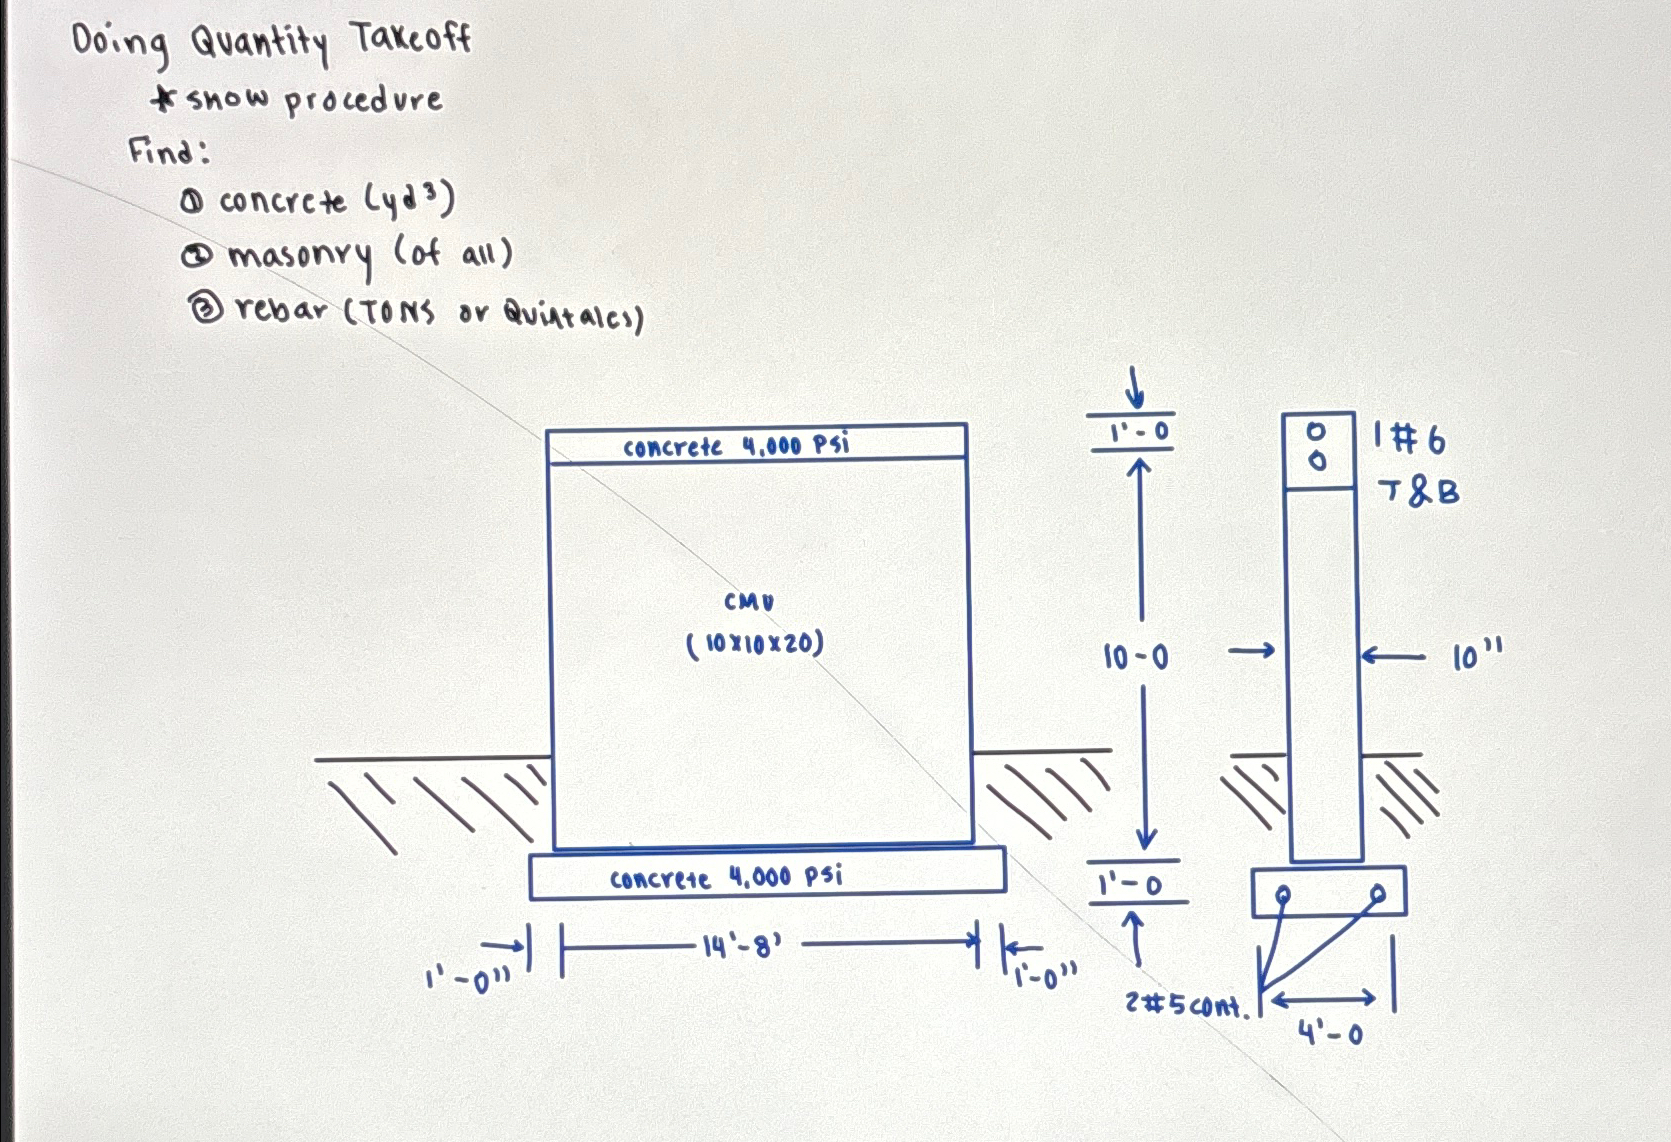 Doing Quantity Takeoff
* show procedure
Find:
① concrete (yd³)
② masonry (of all)
③ rebar (TONS or Quintales)
concrete 4,000 PSi
1'-0
1#6
T&B
CMU
(10x10x20)
10-0
10"
concrete 4,000 psi
1'-0
1'-0"
14'-8'
1'-0"
2#5 cont.
4'-0